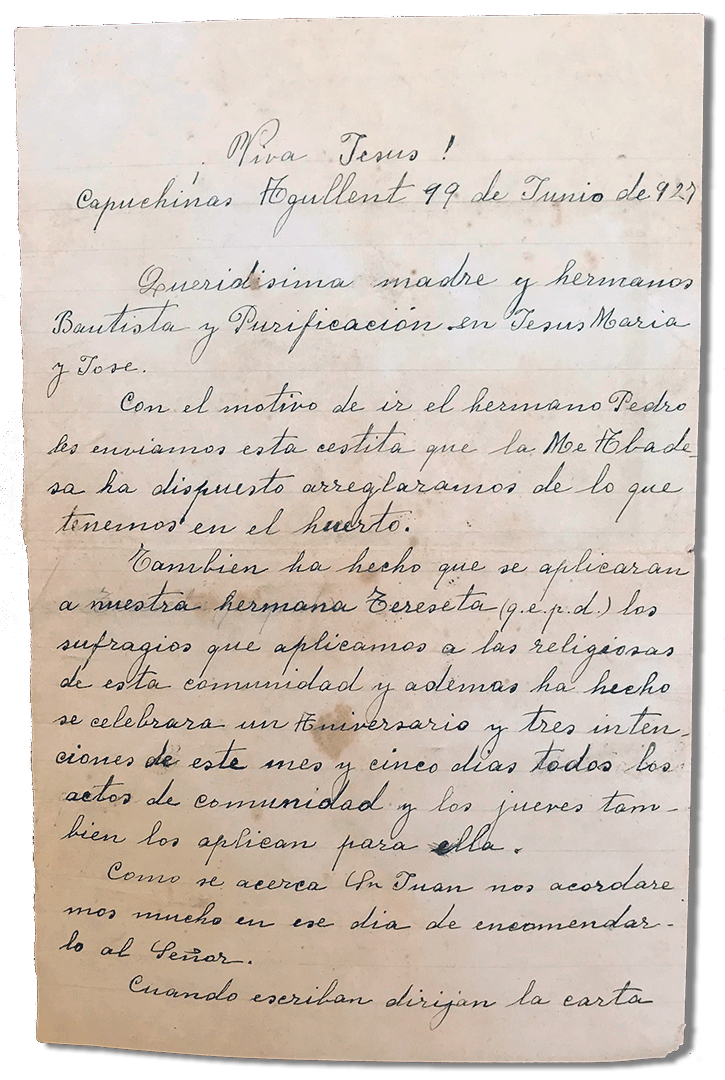 ¡Viva Jesus!
Capuchinas Agullent 19 de Junio de 927
Queridisima madre y hermanos
Bautista y Purificación en Jesus Maria
y Jose.
Con el motivo de ir el hermano Pedro
les enviamos esta cestita que la Me Abade-
sa ha dispuesto arreglaramos de lo que
tenemos en el huerto.
Tambien ha hecho que se aplicaran
a nuestra hermana Tereseta (q.e.p.d.) los
sufragios que aplicamos a las religiosas
de esta comunidad y ademas ha hecho
se celebrara un Aniversario y tres inten-
ciones de este mes y cinco dias todos los
actos de comunidad y los jueves tam-
bien los aplican para ella.
Como se acerca Sn Juan nos acordare
mos mucho en ese dia de encomendar-
lo al Señor.
Cuando escriban dirijan la carta